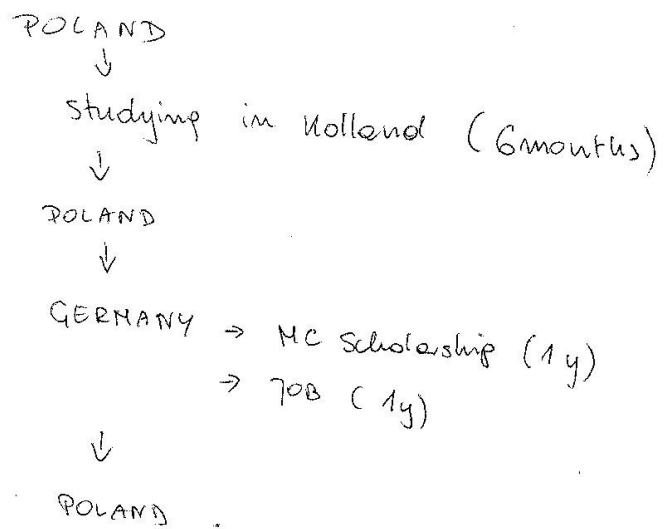 POLAND
↓
studying in Holland (6months)
↓
POLAND
↓
GERMANY → MC Scholarship (1y)
→ JOB (1y)
↓
POLAND.